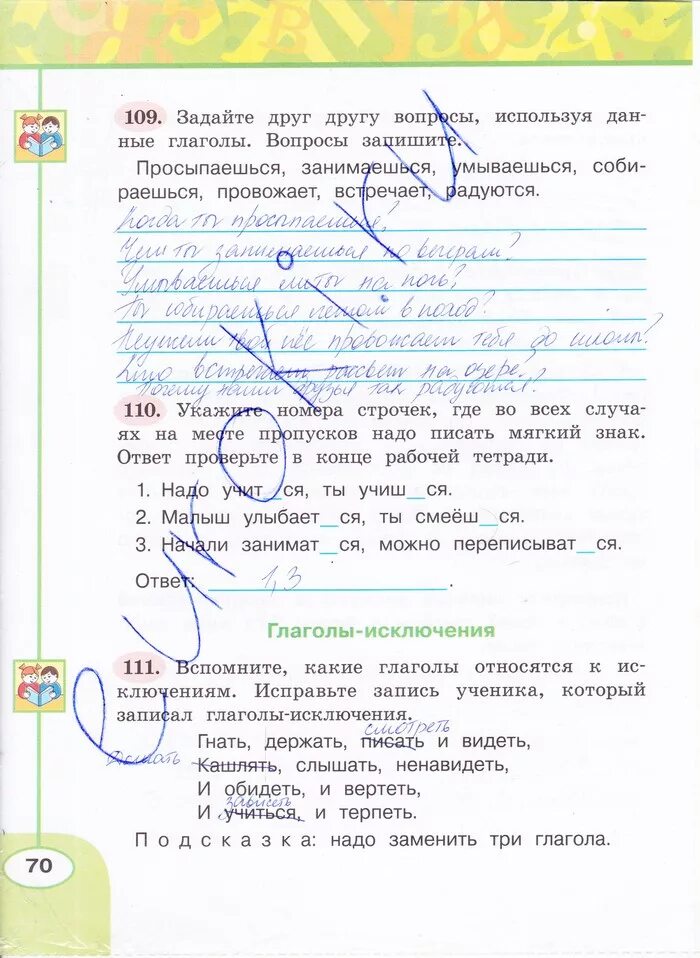 109. Задайте друг другу вопросы, используя дан-
ные глаголы. Вопросы запишите.
Просыпаешься, занимаешься, умываешься, соби-
раешься, провожает, встречает, радуются.
Когда ты просыпаешься?
Чем ты занимаешься по вечерам?
Умываешься ли ты на ночь?
Ты собираешься летом в поход?
Неужели твой пёс провожает тебя до школы?
Кто встречает рассвет на озере?
Почему наши друзья так радуются?
110. Укажите номера строчек, где во всех случа-
ях на месте пропусков надо писать мягкий знак.
Ответ проверьте в конце рабочей тетради.
1. Надо учит_ся, ты учиш_ся.
2. Малыш улыбает_ся, ты смеёш_ся.
3. Начали занимат_ся, можно переписыват_ся.
Ответ: 1,3.
Глаголы-исключения
111. Вспомните, какие глаголы относятся к ис-
ключениям. Исправьте запись ученика, который
записал глаголы-исключения.
смотреть
Гнать, держать, писать и видеть,
Дышать Кашлять, слышать, ненавидеть,
И обидеть, и вертеть,
зависеть
И учиться, и терпеть.
Подсказка: надо заменить три глагола.
70